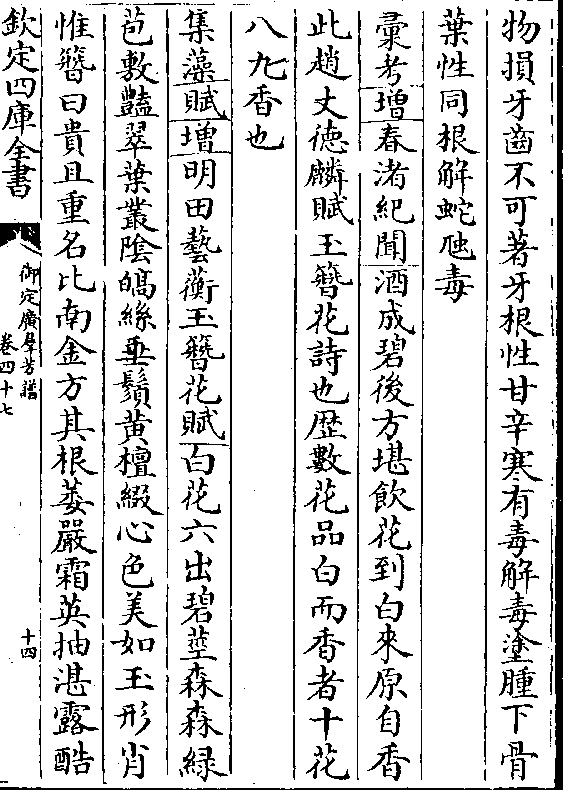 物損牙齒不可著牙根性甘辛寒有毒解毒塗腫下骨
葉性同根解蛇虺毒
彚考增春渚紀聞酒成碧後方堪飲花到白來原自香
此趙丈德麟賦玉簪花詩也歴數花品白而香者十花
八九香也
集藻賦增明田藝蘅玉簪花賦白花六出碧莖森森綠
苞敷豔翠葉叢陰皜絲垂鬚黃檀綴心色美如玉形肖
惟簪曰貴且重名比南金方其根萎嚴霜英抽湛露酷
欽定四庫全書
御定廣羣芳譜
卷四十七
十四